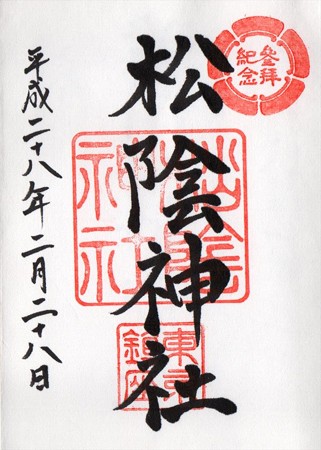 參拝
紀念
松陰神社
松陰神社
東京
鎮座
平成二十八年二月二十八日